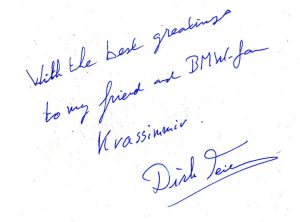 With the best greatings
to my friend and BMW-fan
Krassimmir.
Dirk